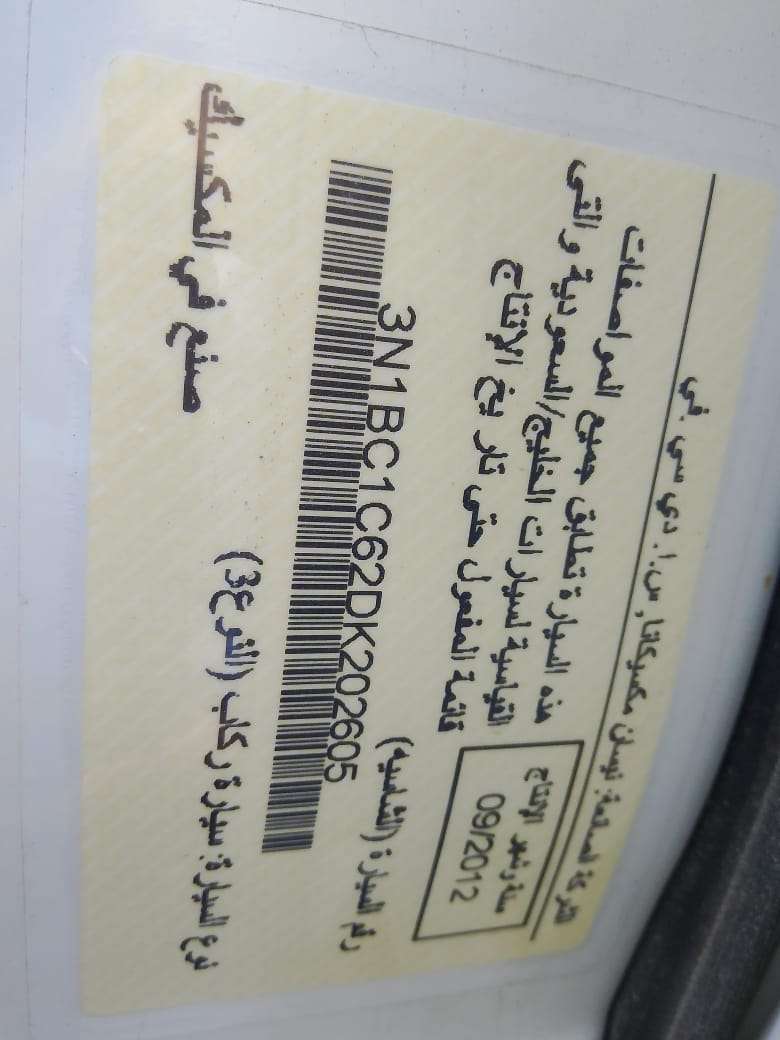 الشركة الصانعة: نيسان مكسيكانا, س.ا. دي سي.في
سنة وشهر الإنتاج
09/2012
هذه السيارة تطابق جميع المواصفات
القياسية لسيارات الخليج/السعودية و التي
قائمة المفعول حتى تاريخ الإنتاج
رقم السيارة (الشاسيه)
3N1BC1C62DK202605
نوع السيارة: سيارة ركاب (النوع3)
صنع في المكسيك